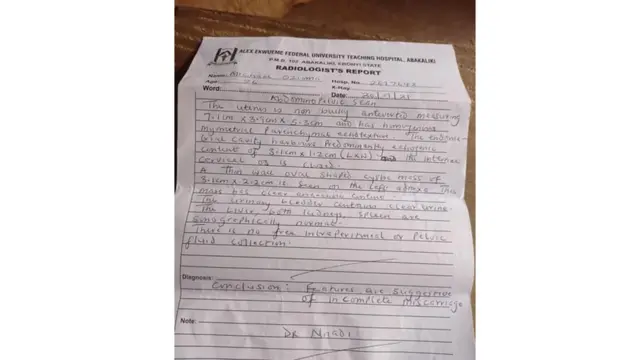 ALEX EKWUEME FEDERAL UNIVERSITY TEACHING HOSPITAL, ABAKALIKI
P.M.B. 102 ABAKALIKI, EBONYI STATE
RADIOLOGIST'S REPORT
Name: Hosp. No.
Age: 26 X-Ray
Word: Date:
Abdominopelvic Scan
The uterus is non bulky anteverted measuring
7.1cm x 3.9cm x 5.3cm and has homogenous
myometrial parenchymal echotexture. The endome-
trial cavity harbours predominantly echogenic
content of 3.1cm x 1.2cm (LXH) the internal
cervical os is closed.
A thin wall oval shaped cystic mass of
3.1cm x 2.2cm is seen on the left adnexae this
mass has clear anechoic content.
The urinary bladder contains clear urine.
The liver, both kidneys, spleen are
sonographically normal.
There is no free intraperitoneal or pelvic
fluid collection.
Diagnosis:
Conclusion: Features are suggestive
of incomplete miscarriage
Note:
DR